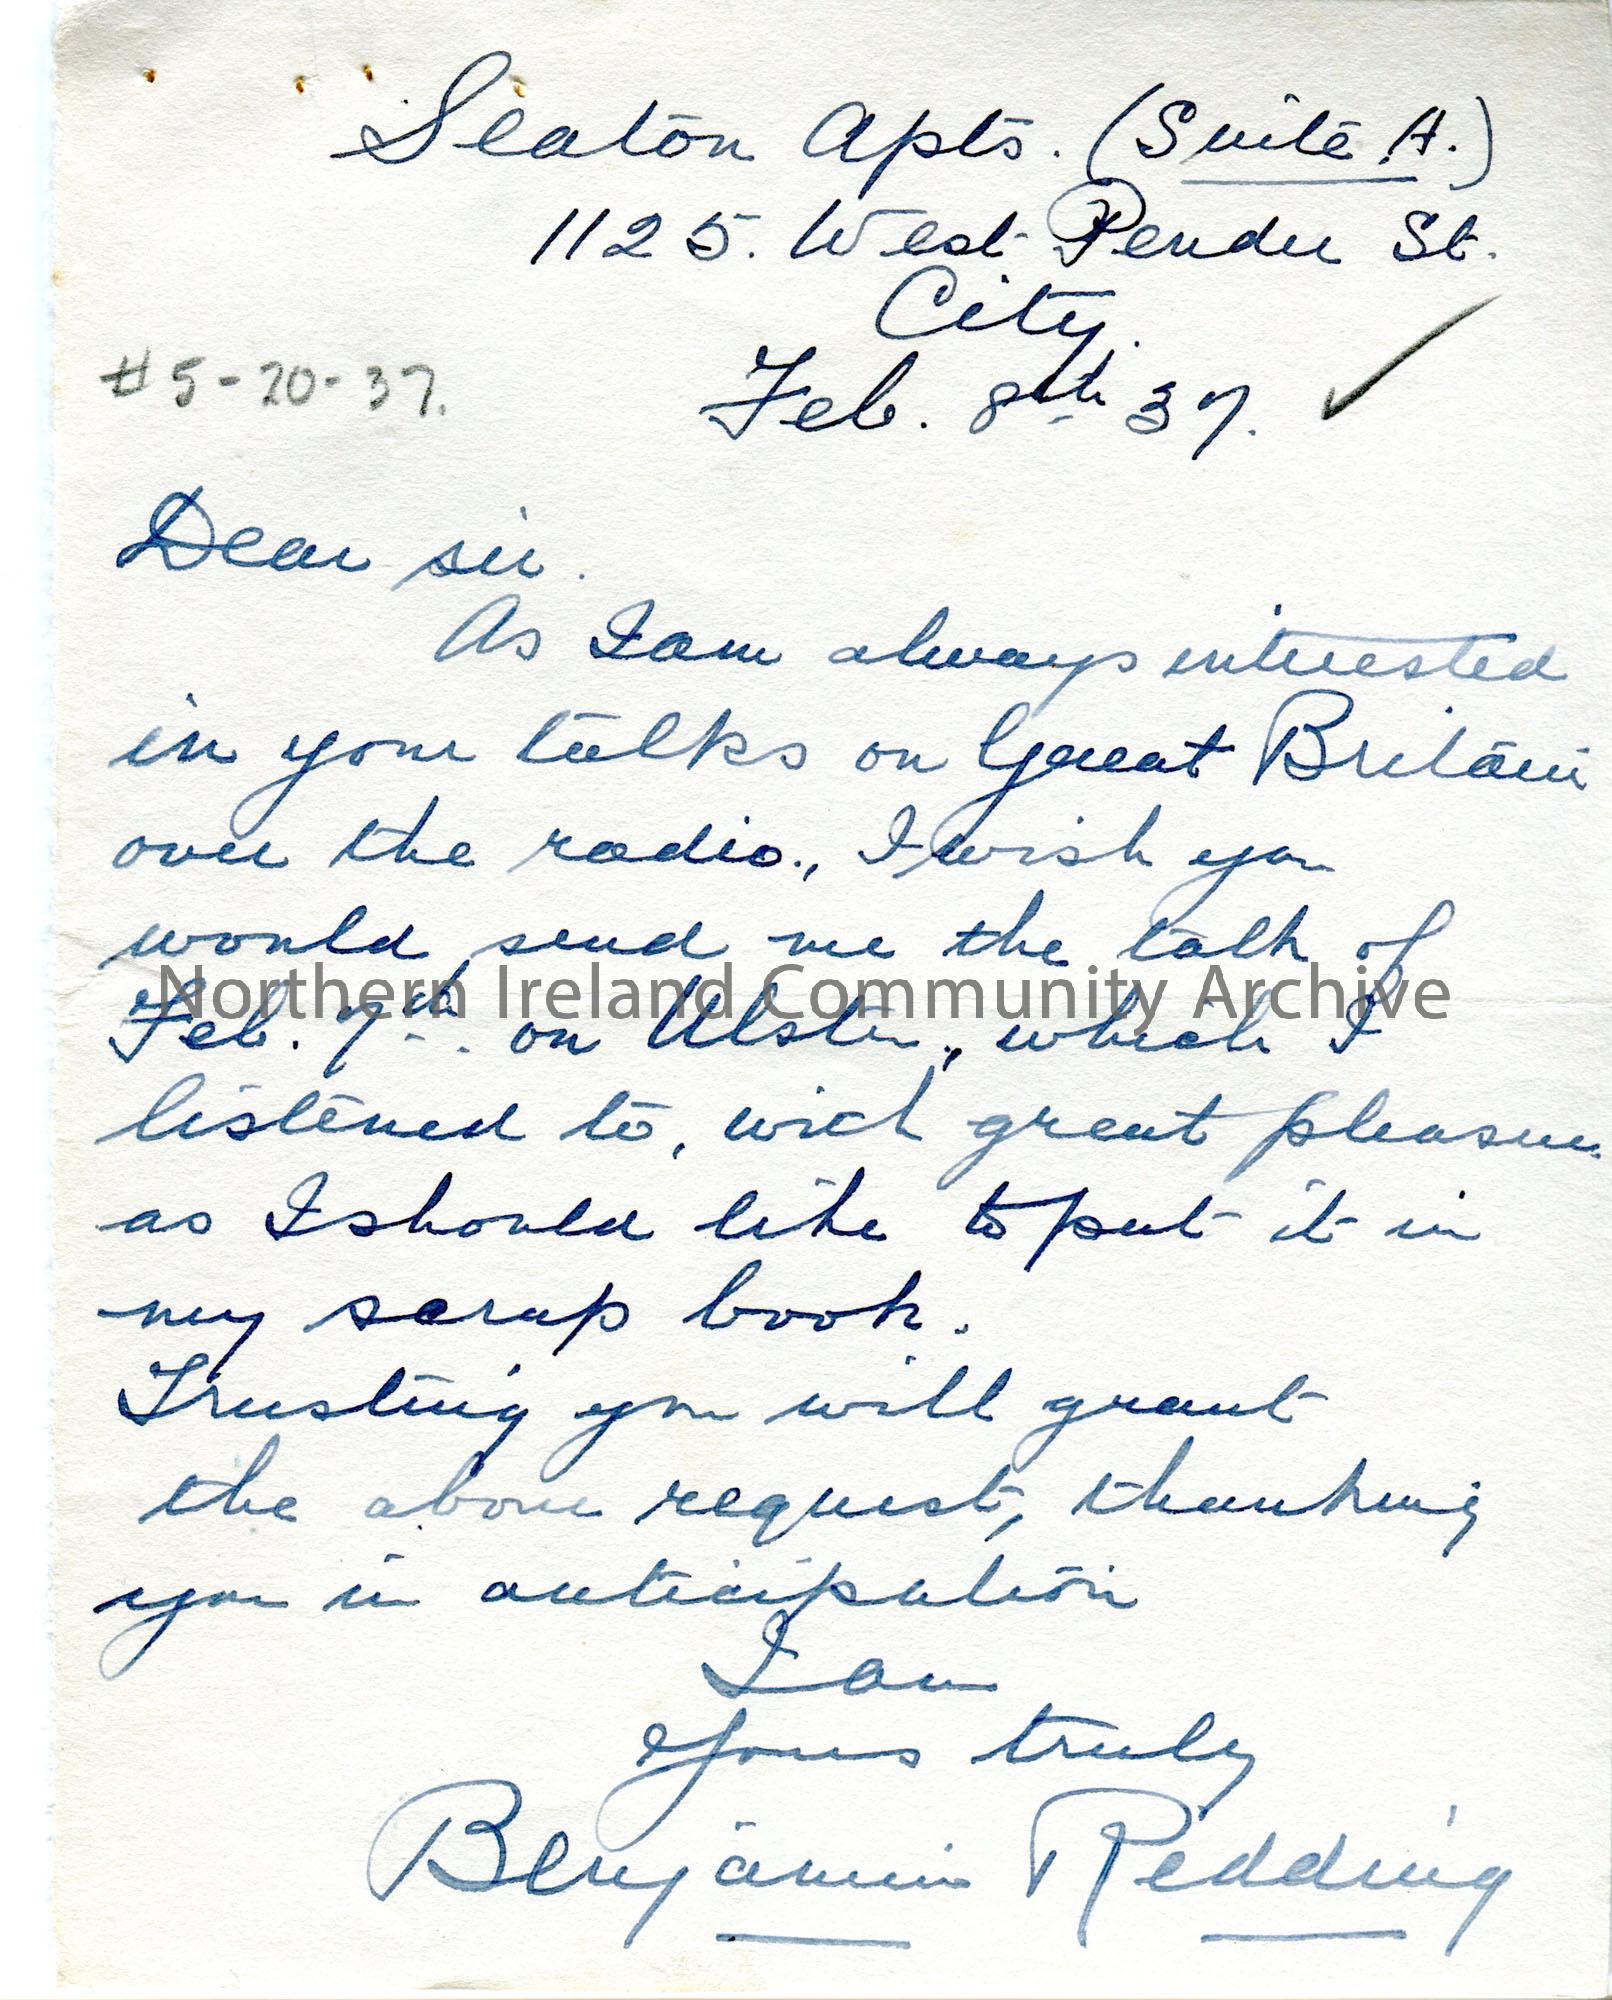 Seaton Apts. (Suite A.)
1125. West Pender St.
City.
#5-20-37.
Feb. 8th 37.
Dear sir.
As I am always interested
in your talks on Great Britain
over the radio., I wish you
would send me the talk of
Northern Ireland Community Archive
Feb. 7th. on Ulster., which I
listened to, with great pleasure.
as I should like to put it in
my scrap book.
Trusting you will grant
the above request, thanking
you in anticipation
I am
Yours truly
Benjamin Redding